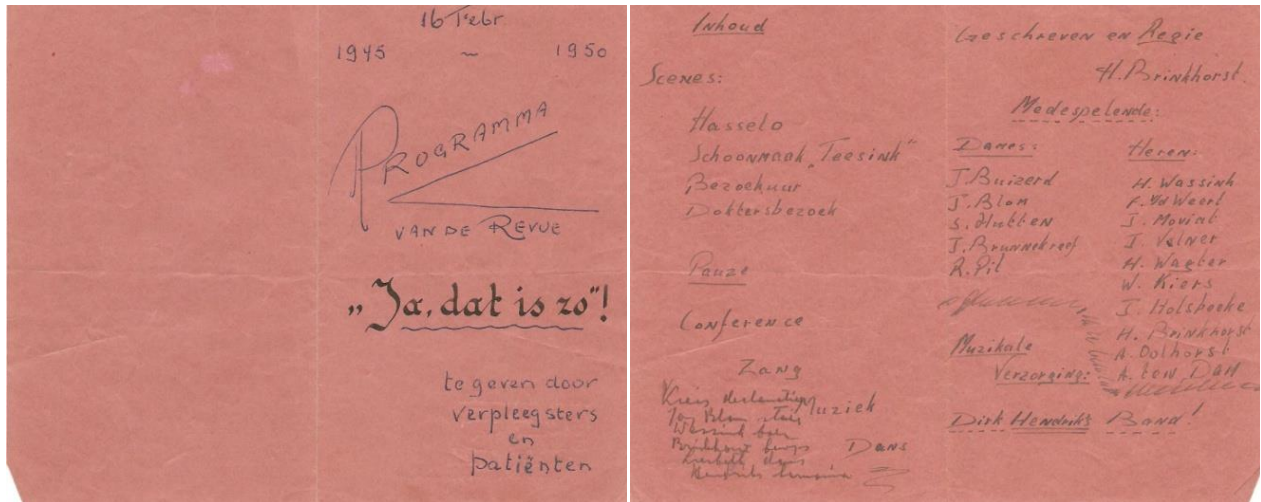 16 Febr
1945 ~ 1950
PROGRAMMA
VAN DE REVUE
„Ja, dat is zo"!
te geven door
verpleegsters
en
patiënten
Inhoud
Scenes:
Hasselo
Schoonmaak „Teesink"
Bezoekuur
Doktersbezoek
Pauze
Conference
Zang
Muziek
Dans
Kiers
Joy Blom
Wassink
Brinkhorst
Hendriks
Geschreven en Regie
H. Brinkhorst.
Medespelende:
Dames:
J. Buizerd
J. Blom
S. Hutten
J. Brunnekreef
R. Pil
Heren:
H. Wassink
F. vd Weert
J. Moviat
J. Velner
H. Wagter
W. Kiers
J. Holsbeeke
H. Brinkhorst
A. Oolhorst
A. ten Dam
Muzikale
Verzorging:
Dirk Hendriks Band!